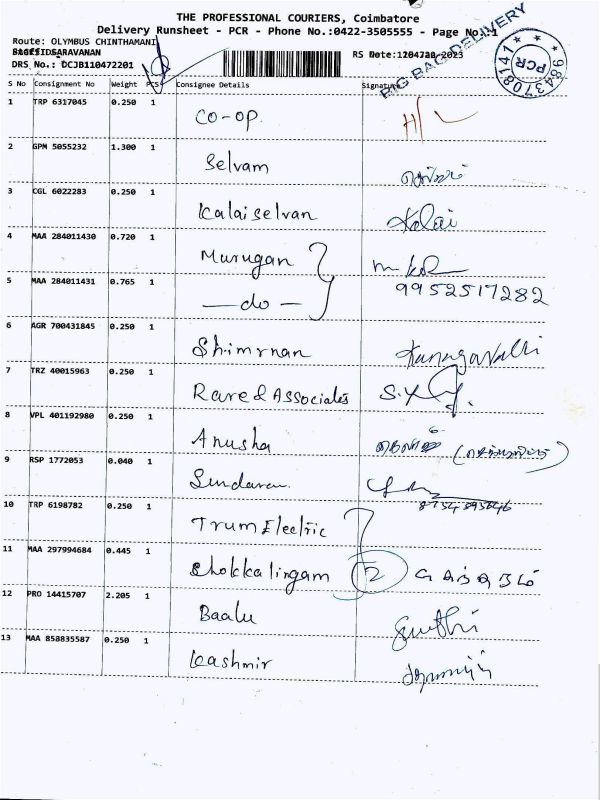 THE PROFESSIONAL COURIERS, Coimbatore
Delivery Runsheet - PCR - Phone No.:0422-3505555 - Page No:1
Route: OLYMBUS CHINTHAMANI
DRS No.: DCJB110472201
RS Date:
BIG BAG DELIVERY
9843708141 PCR
S No Consignment No Weight PCS Consignee Details Signature
1 TRP 6317045 0.250 1 CO-OP.
2 GPM 5055232 1.300 1 Selvam
3 CGL 6022283 0.250 1 Kalaiselvan Kalai
4 MAA 284011430 0.720 1 Murugan
5 MAA 284011431 0.765 1 —do— 9952517282
6 AGR 700431845 0.250 1 Shimrnan Kanagavalli
7 TRZ 40015963 0.250 1 Rare & Associates
8 VPL 401192980 0.250 1 Anusha
9 RSP 1772053 0.040 1 Sundaram
10 TRP 6198782 0.250 1 Trum Electric
11 MAA 297994684 0.445 1 Chokkalingam 2
12 PRO 14415707 2.205 1 Baalu
13 MAA 858835587 0.250 1 Kashmir